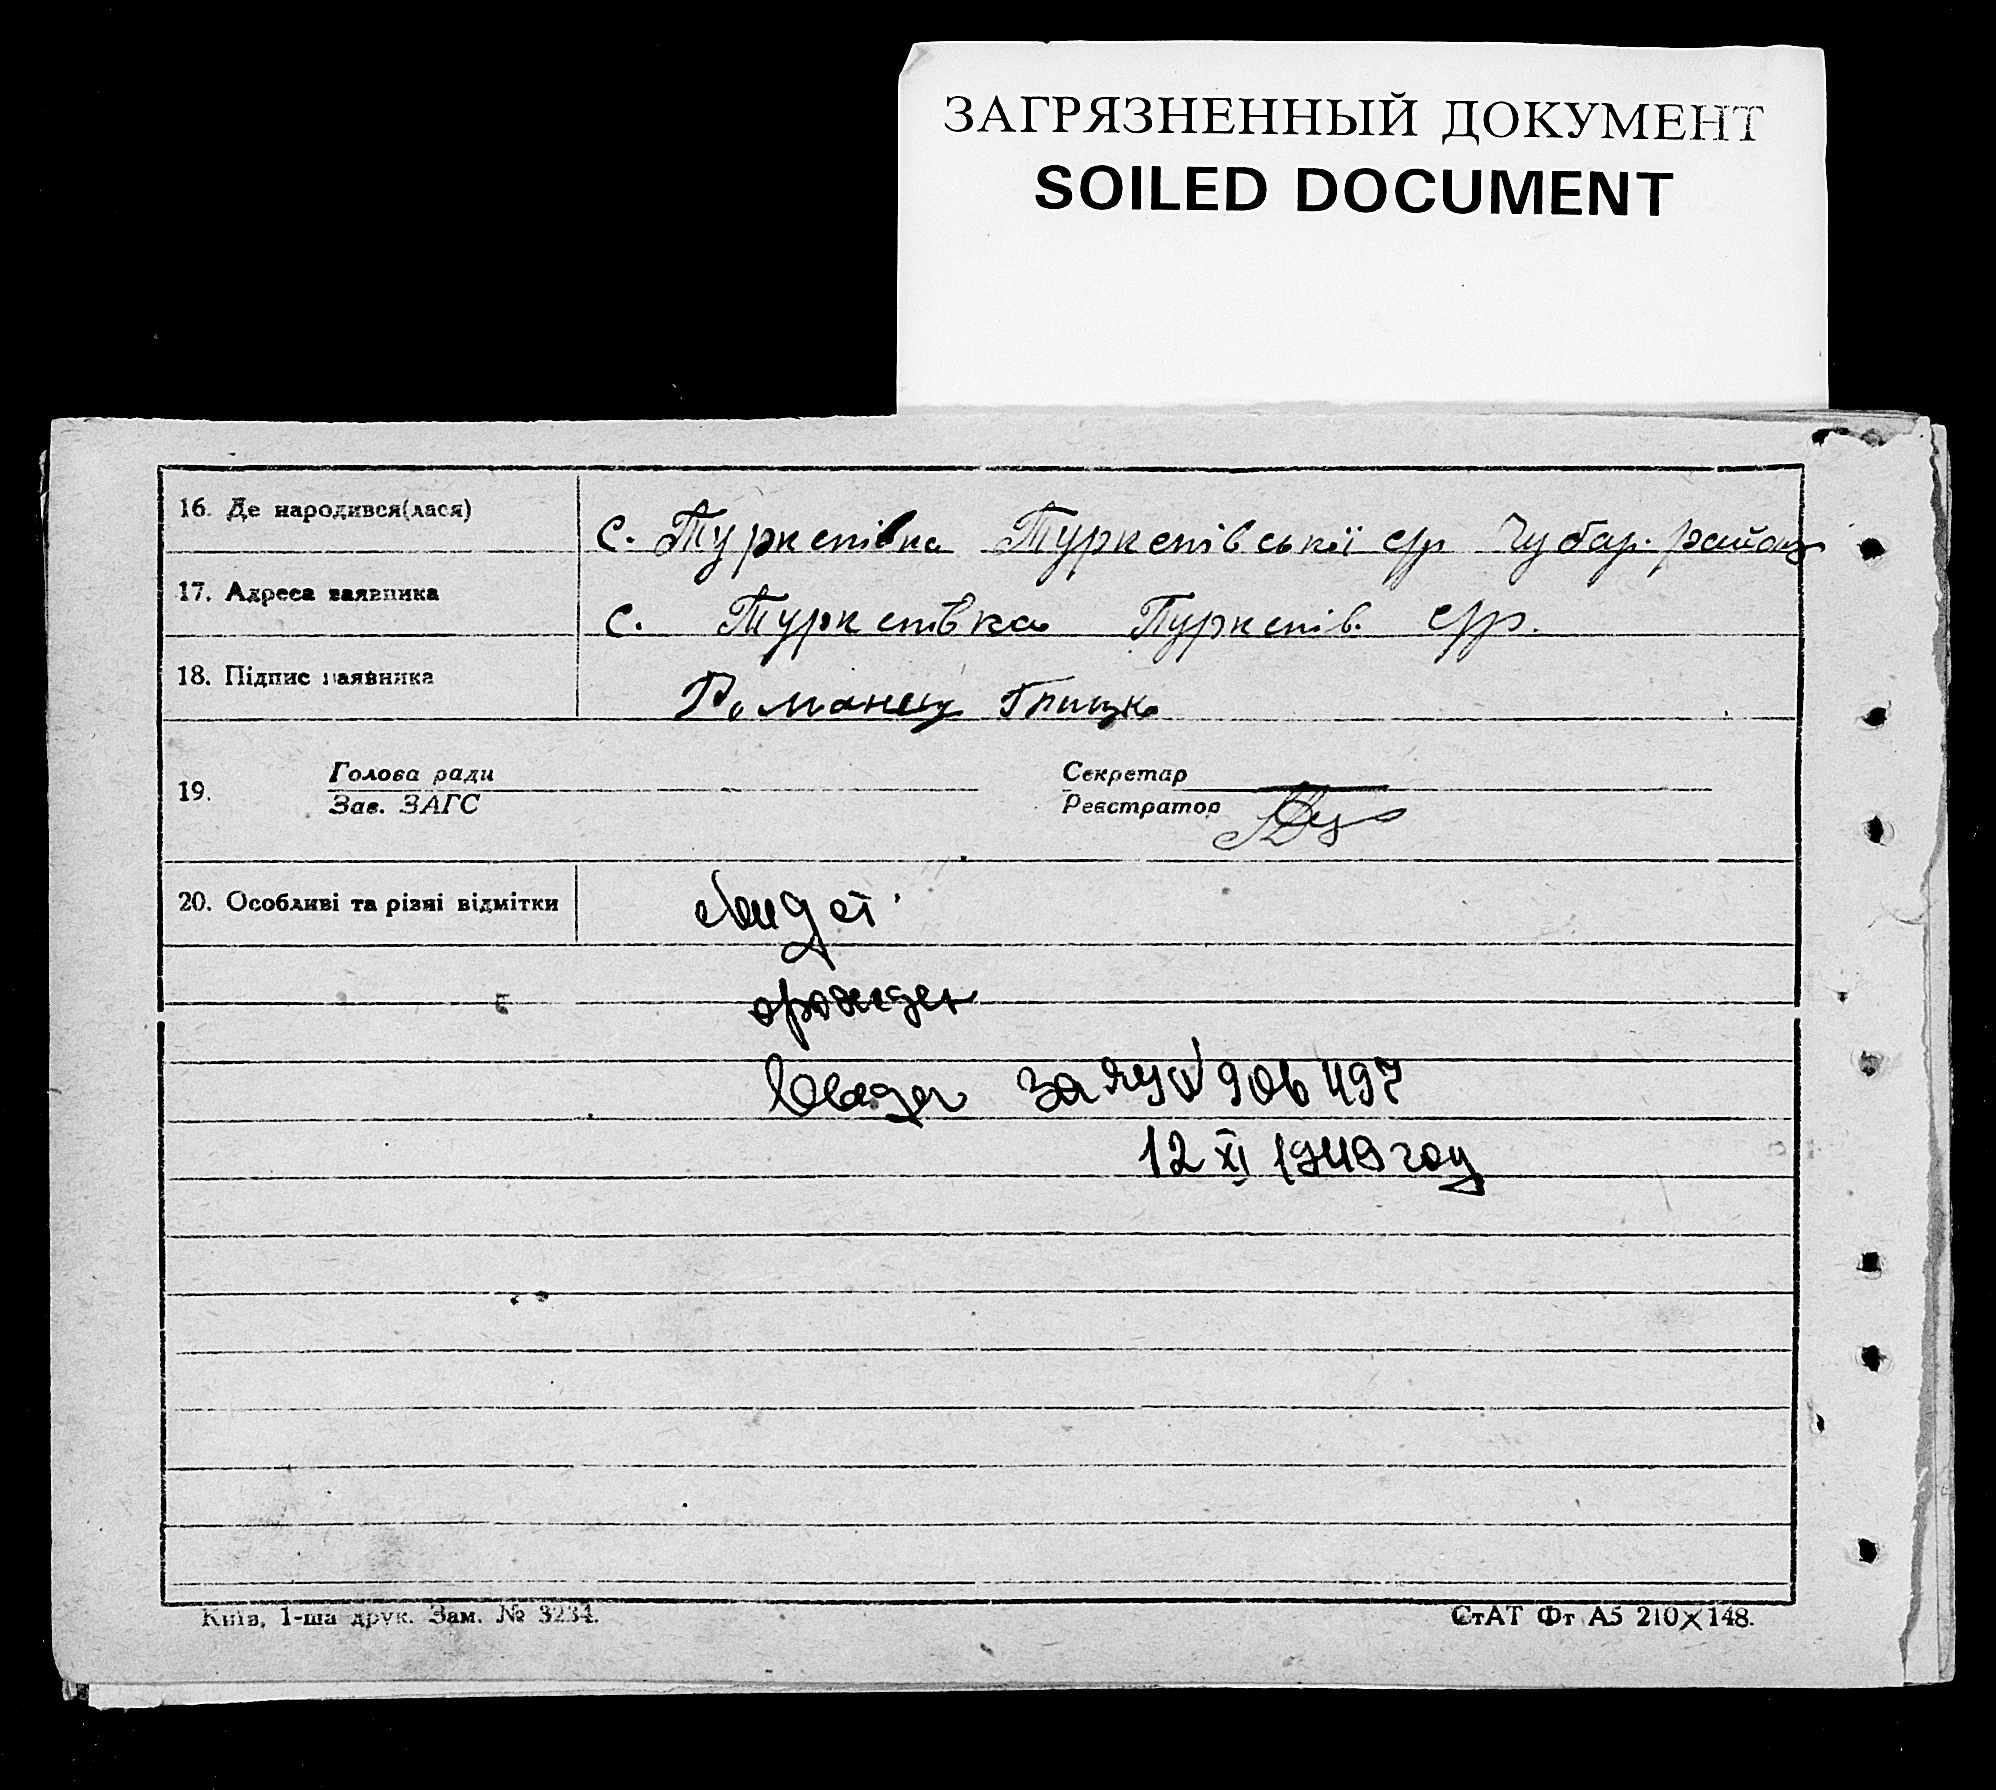 ЗАГРЯЗНЕННЫЙ ДОКУМЕНТ
SOILED DOCUMENT
16. Де народився(лася)
с. Туркенівка Туркенівської с/р Чубар. району
17. Адреса заявника
с. Туркенівка Туркенів. с/р.
18. Підпис заявника
Романец Грицко
19.
Голова ради
Зав. ЗАГС
Секретар
Реєстратор
20. Особливі та різні відмітки
12 XI 1949 году
Київ, 1-ша друк. Зам. № 3234.
СтАТ Фт А5 210×148.